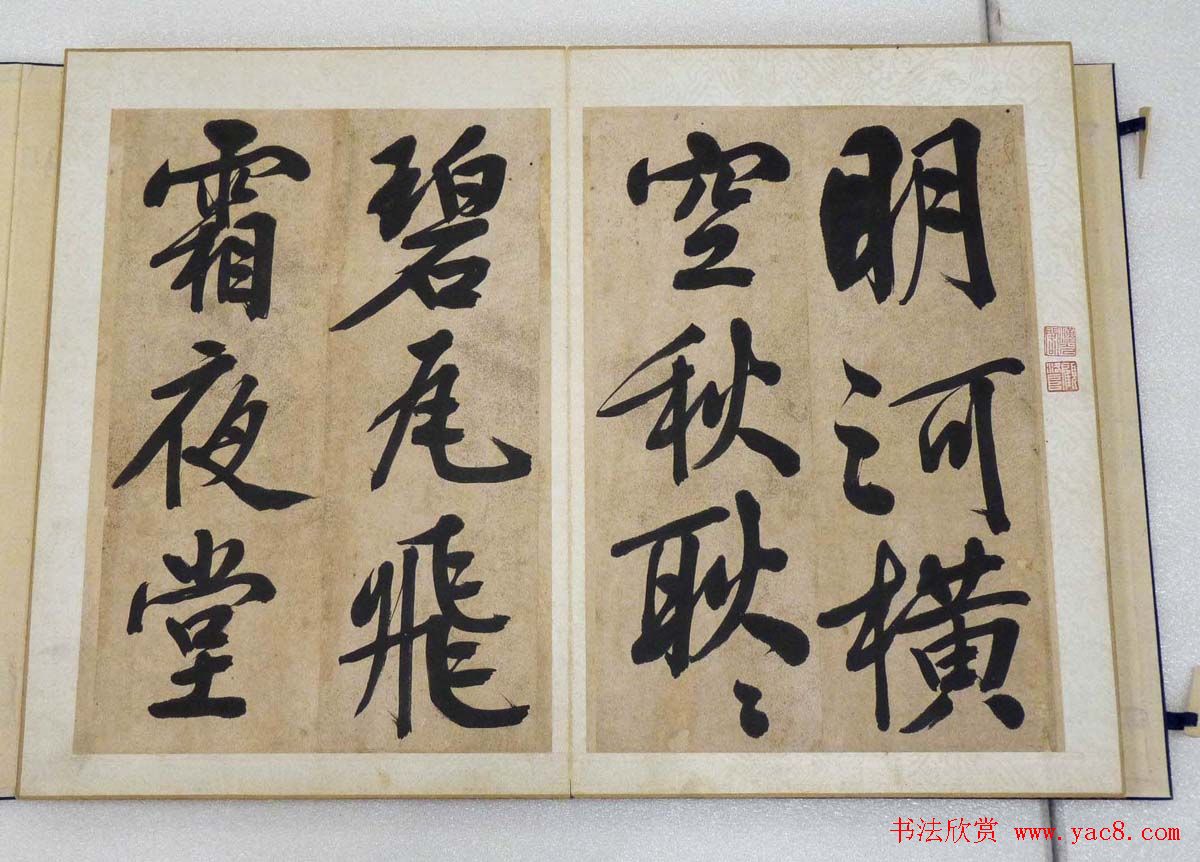 明河橫
空秋耿〻
碧瓦飛
霜夜堂
书法欣赏 www.yac8.com